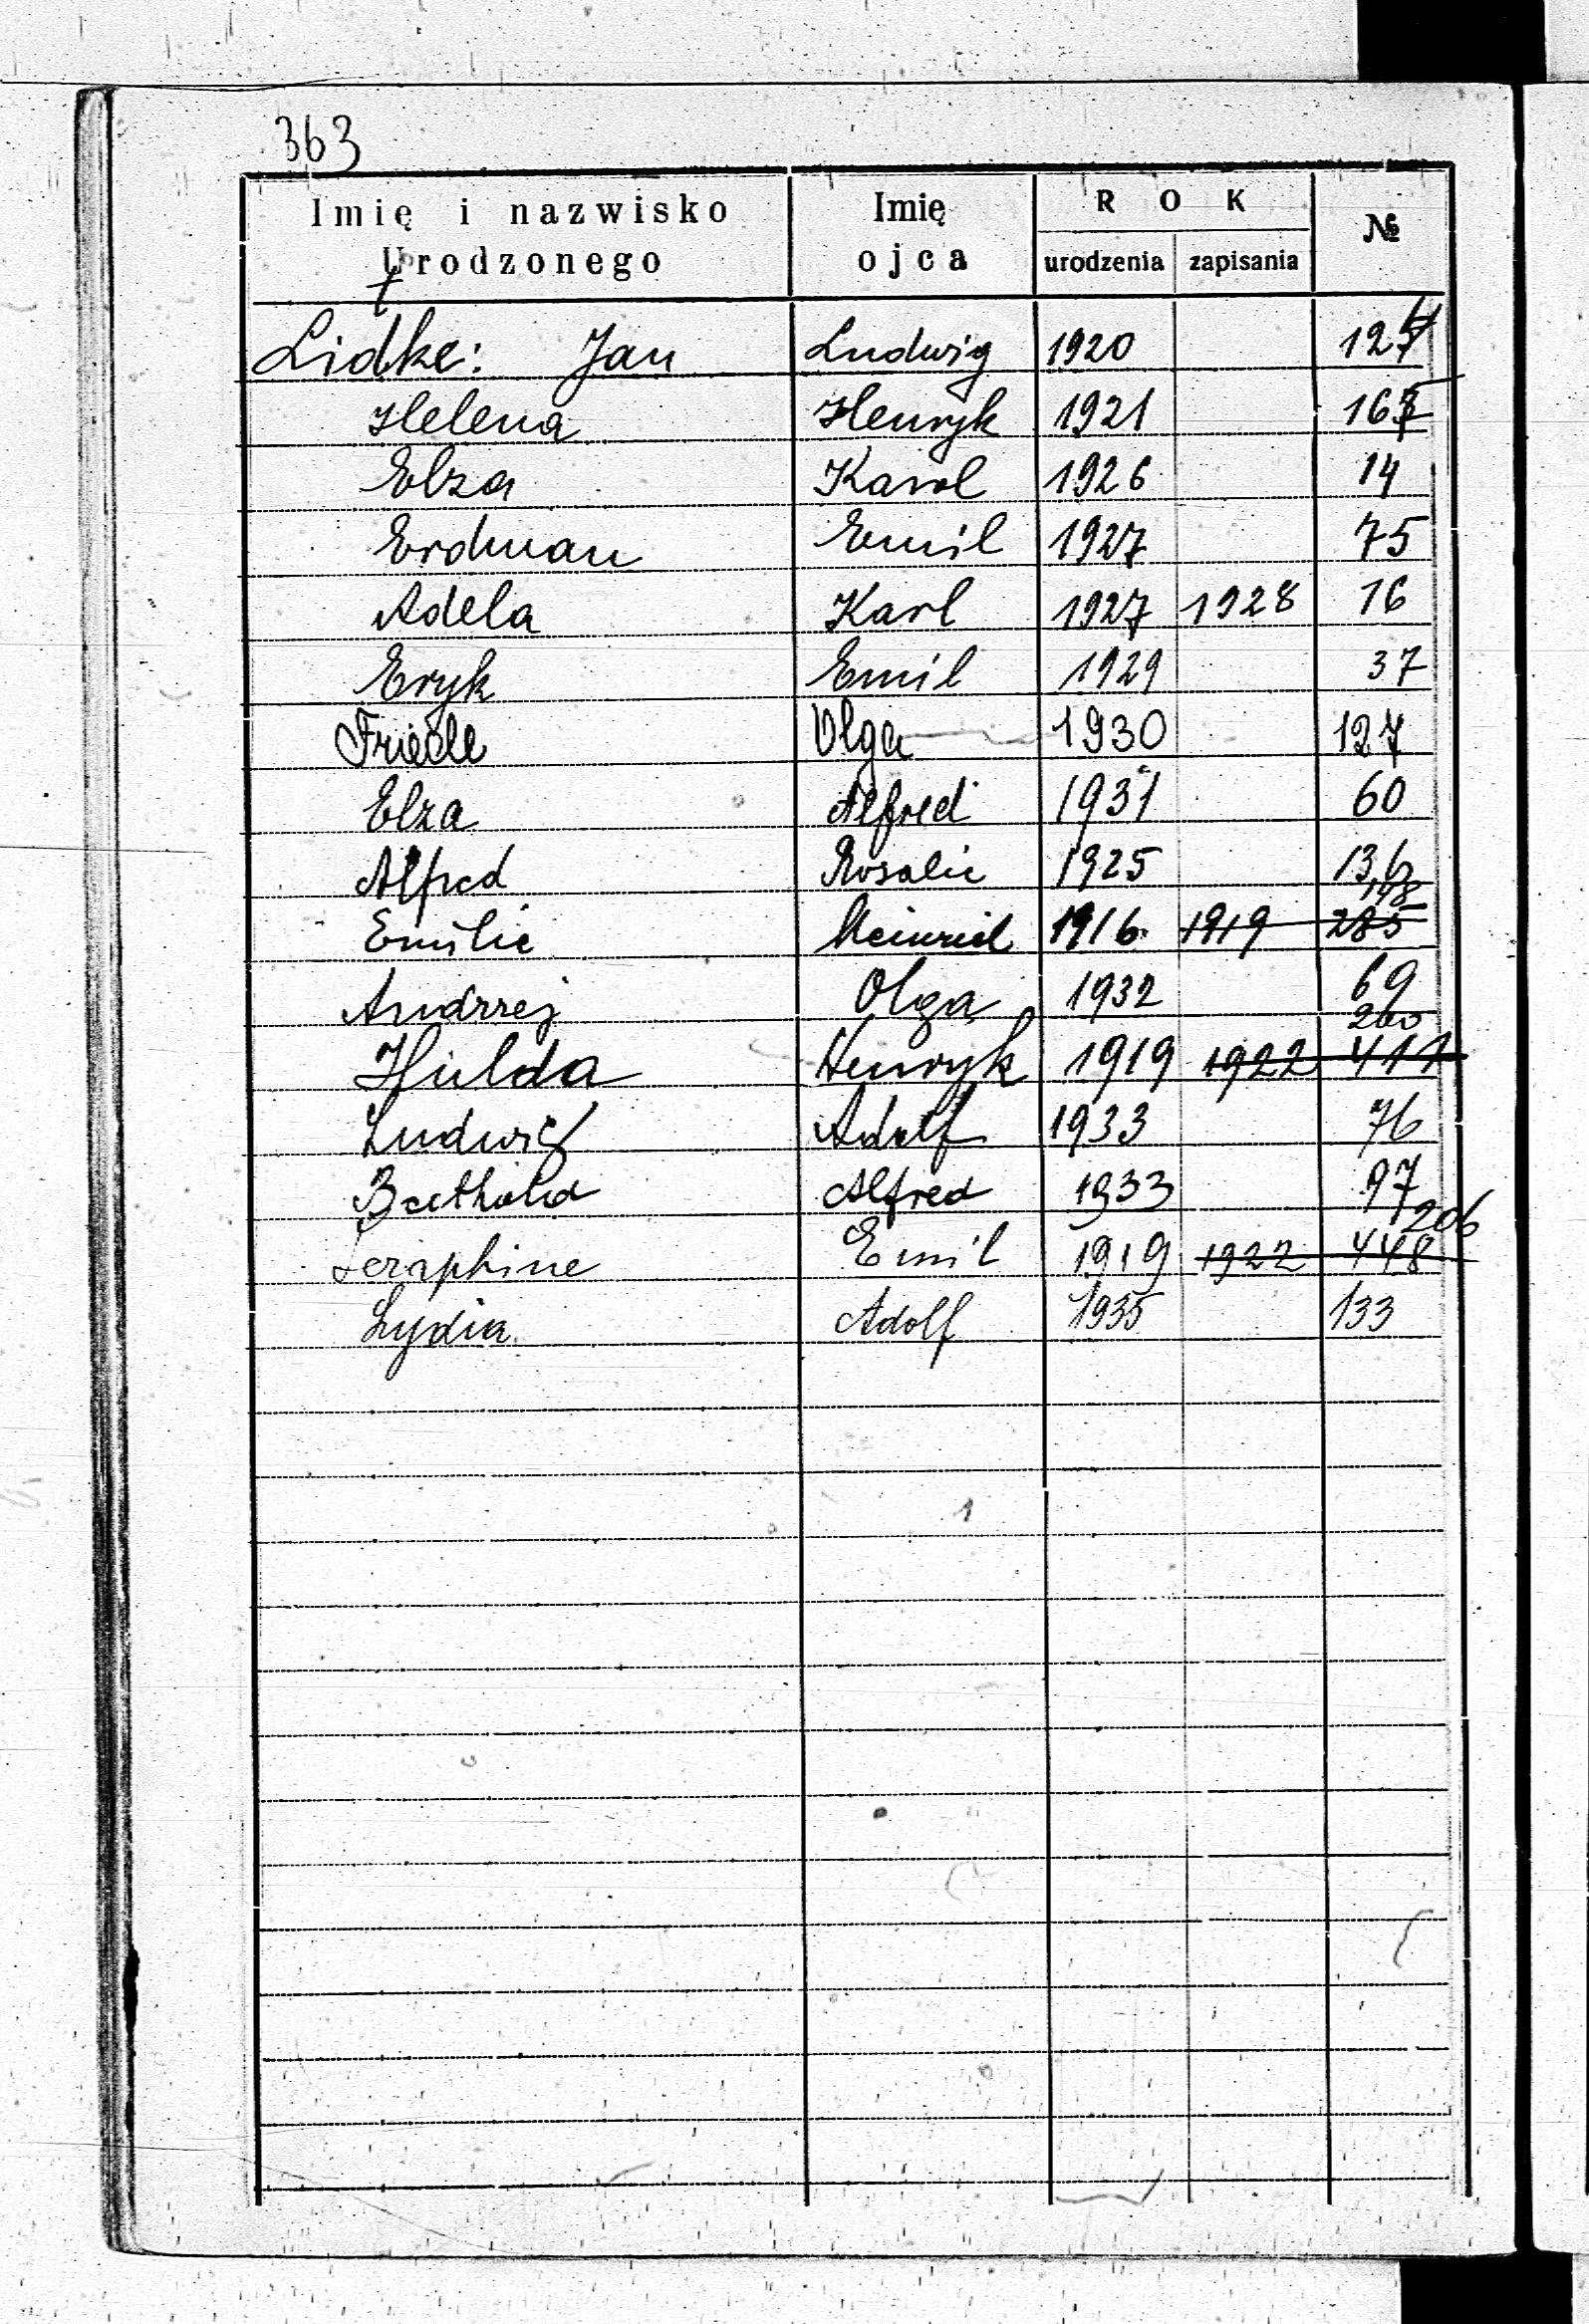 363
Imię i nazwisko Urodzonego Imię ojca ROK urodzenia zapisania №
Lidtke: Jan Ludwig 1920 124
Helena Henryk 1921 165
Elza Karol 1926 14
Erdman Emil 1927 75
Adela Karl 1927 1928 16
Eryk Emil 1929 37
Friede Olga 1930 127
Elza Alfred 1931 60
Alfred Rosalie 1925 136
148
Emilie Heinrich 1916 1919 285
Andrzej Olga 1932 69
260
Hulda Henryk 1919 1922 411
Ludwig Adolf 1933 76
Berthold Alfred 1933 97
206
Seraphine Emil 1919 1922 448
Lydia Adolf 1935 133